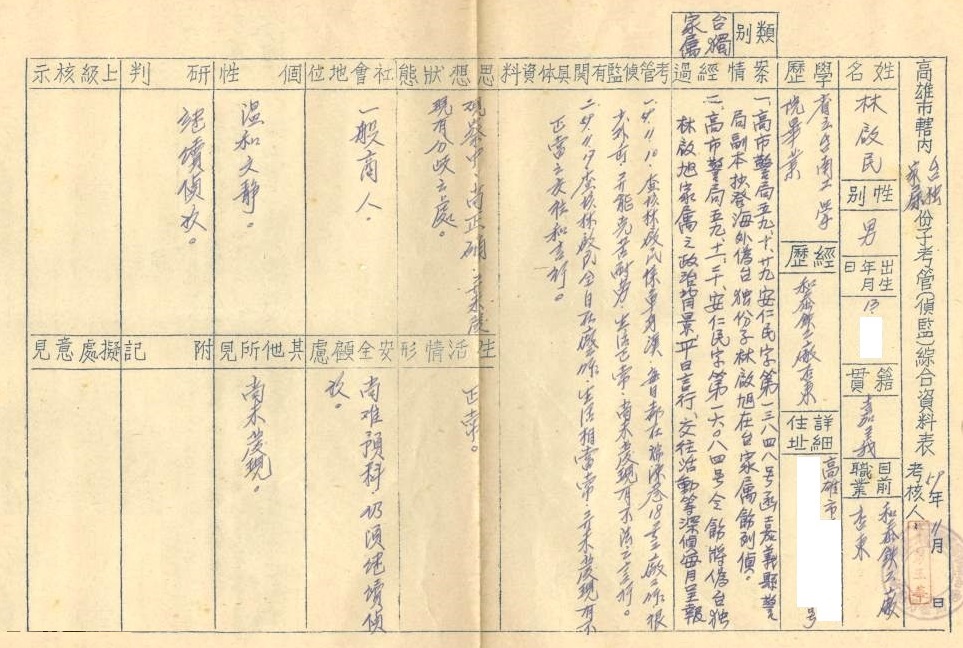 類別
台獨家屬
高雄市轄內台独家屬份子考管(偵監)綜合資料表
59年11月 日
考核人
姓名
林啟民
性別
男
出生年月日
13
籍貫
嘉義
目前職業
和泰鉄工廠
股東
學歷
省立台南工學院畢業
經歷
和泰鉄工廠股東
詳細住址
高雄市
号
案情經過
一、高市警局五九、十、廿九安仁民字第一三八四八号函嘉義縣警
局副本抉登海外偽台独份子林啟旭在台家属飭列偵。
二、高市警局五九、十一、二十、安仁民字第一六〇八四号令飭將偽台独
林啟旭家属之政治背景平日言行、交往活動等深偵每月呈報
考管偵監有關具体資料
一、59.11.10.查核林啟民係單身漢,每日都在瑞源巷18号工廠工作很
少外出,并能克苦耐劳,生活正常,尚未發現有不法之言行。
二、59.11.17.查核林啟民全日在廠工作,生活相當正常,并未發現有不
正當之交往和言行。
思想狀態
觀察中,尚正確,并未發
現有分歧之處。
社會地位
一般商人。
個性
溫和文静。
研判
継續偵玫。
上級核示
生活情形
正常。
安全顧慮
尚难預料,仍須継續偵
玫。
其他所見
尚未發現。
附記
擬處意見